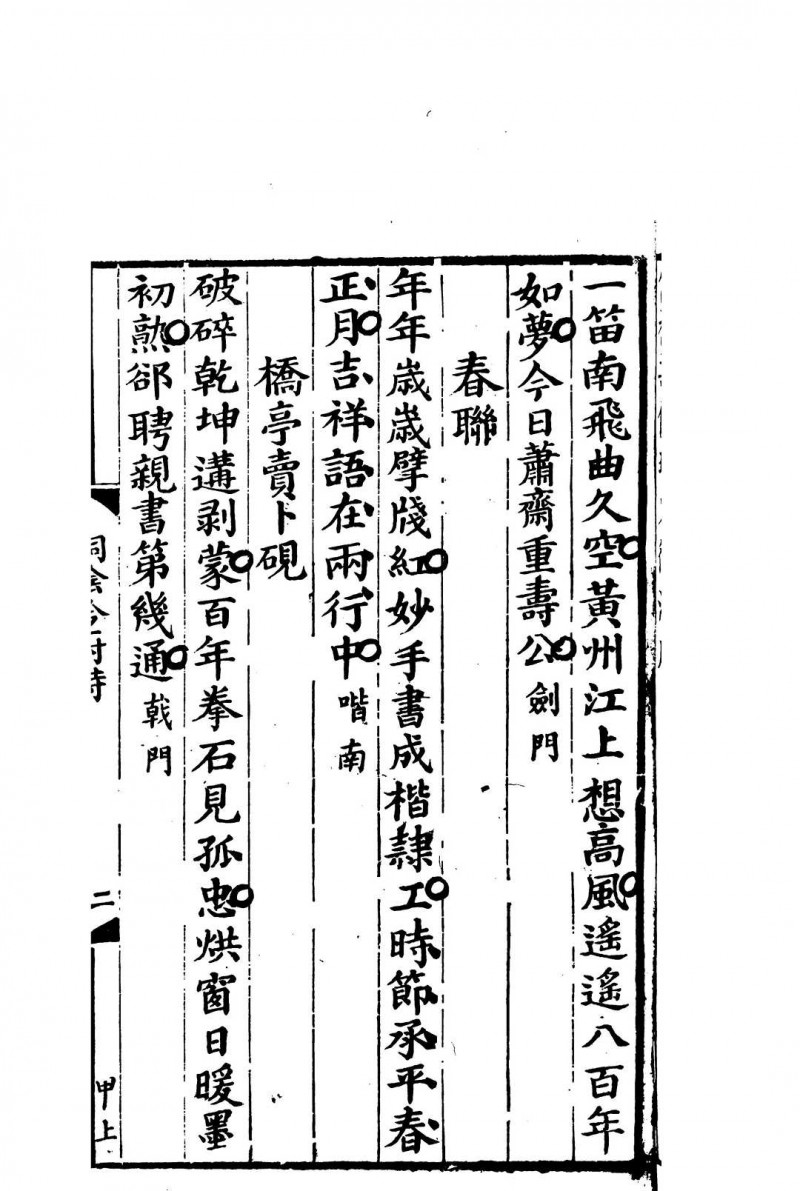 一笛南飛曲久空黃州江上想高風遙遙八百年
如夢今日蕭齋重壽公劍門
春聯
年年歲歲擘牋紅妙手書成楷隸工時節承平春
正月吉祥語在兩行中喈南
橋亭賣卜硯
破碎乾坤遘剥蒙百年拳石見孤忠烘窗日暖墨
初熟郤聘親書第幾通戟門
二
甲上